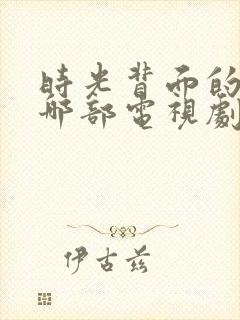 時光背面的
哪部電視劇
伊古兹